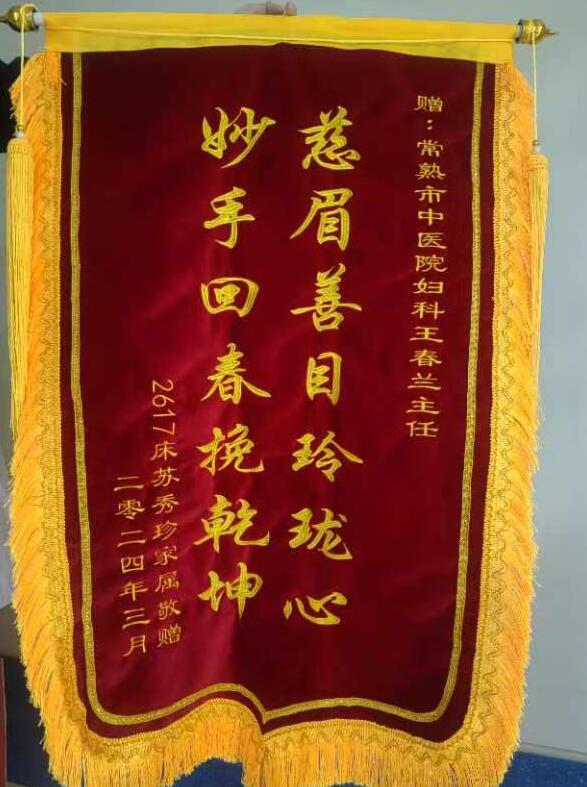 赠：常熟市中医院妇科王春兰主任
慈眉善目玲珑心
妙手回春挽乾坤
2617床苏秀珍家属敬赠
二零二四年三月